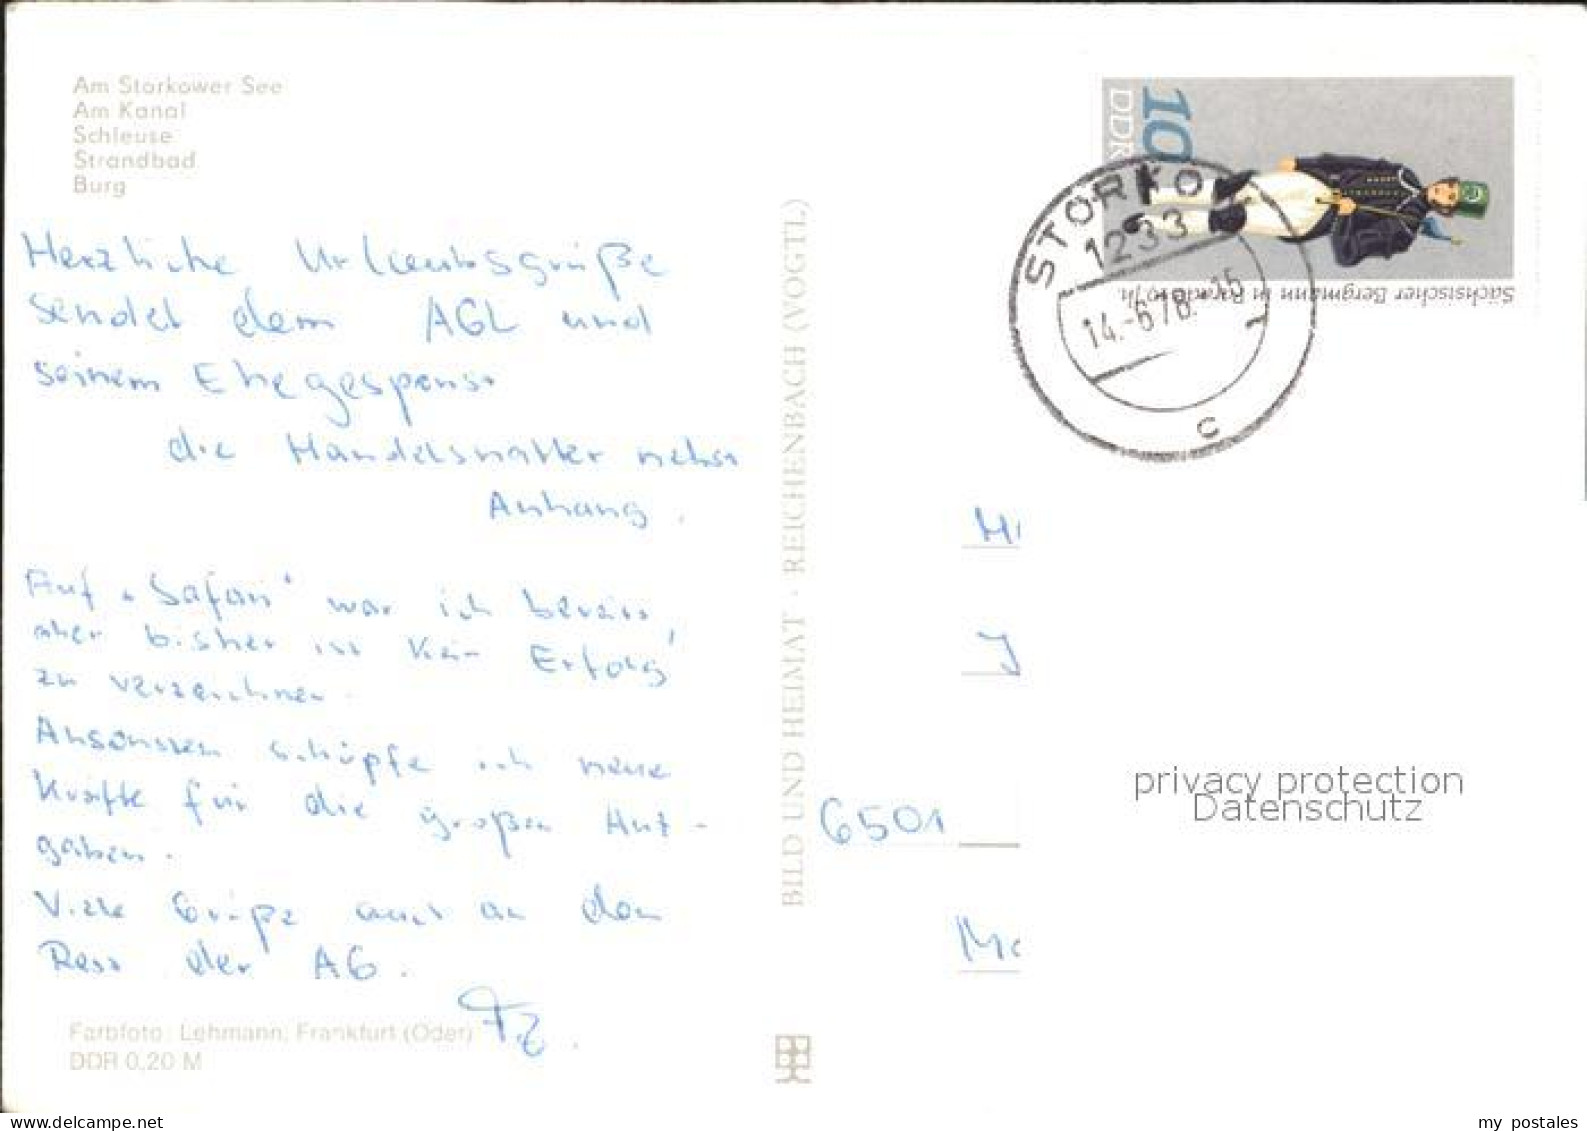 Am Storkower See
Am Kanal
Schleuse
Strandbad
Burg
Herzliche Urlaubsgrüße
sendet dem AGL und
seinem Ehegespons
die Handelsnatter nebst
Anhang.
Auf "Safari" war ich bereits,
aber bisher ist kein Erfolg
zu verzeichnen.
Ansonsten schöpfe ich neue
Kräfte für die großen Auf-
gaben.
Viele Grüße auch an den
Rest der AG.
Farbfoto: Lehmann, Frankfurt (Oder)
DDR 0,20 M
BILD UND HEIMAT · REICHENBACH (VOGTL.)
10
DDR
Sächsischer Bergmann in Parade 19. Jh.
STORKO
1233
14.-6.78.-15
c
6501
privacy protection
Datenschutz
delcampe.net
my_postales